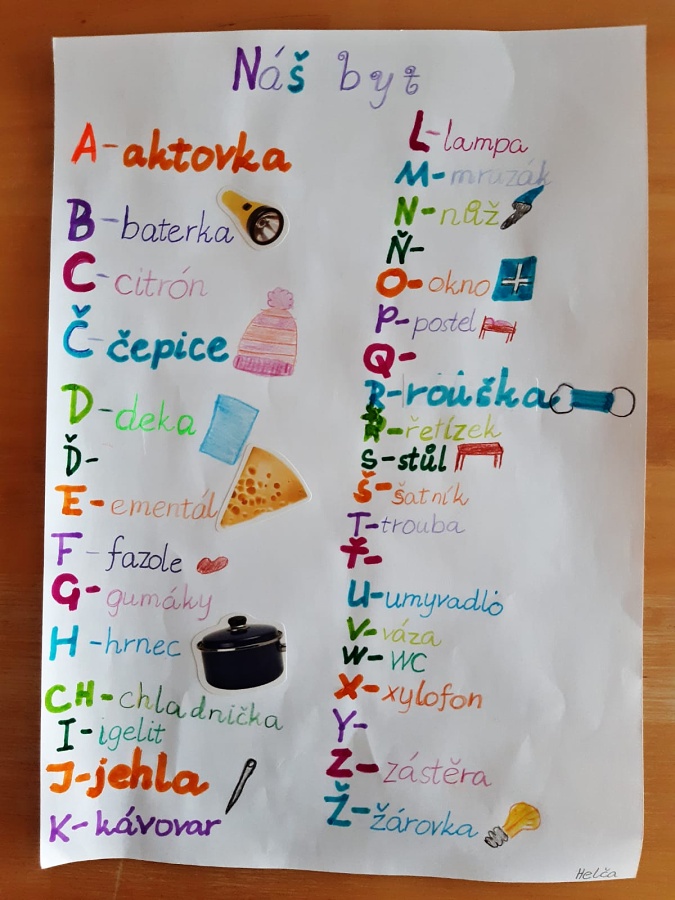 Náš byt
A-aktovka
B-baterka
C-citrón
Č-čepice
D-deka
Ď-
E-ementál
F-fazole
G-gumáky
H-hrnec
CH-chladnička
I-igelit
J-jehla
K-kávovar
L-lampa
M-mrazák
N-nůž
Ň-
O-okno
P-postel
Q-
R-rouška
Ř-řetízek
S-stůl
Š-šatník
T-trouba
Ť-
U-umyvadlo
V-váza
W-WC
X-xylofon
Y-
Z-zástěra
Ž-žárovka
Helča